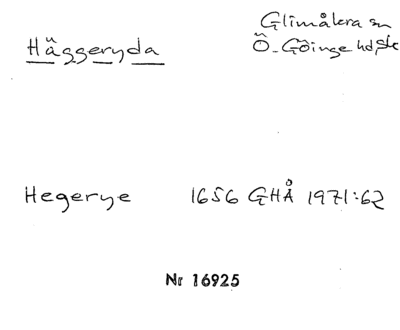 Häggeryda
Glimåkra sn
Ö. Göinge hd, Sk
Hegerye 1656 GHÅ 1971:62
Nr 16925